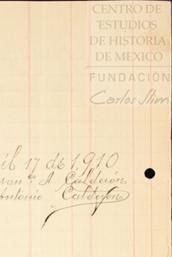 CENTRO DE
ESTUDIOS
DE HISTORIA
DE MEXICO
FUNDACIÓN
Carlos Slim
il 17 de 1,910
A Calderón
Antonio Calderón